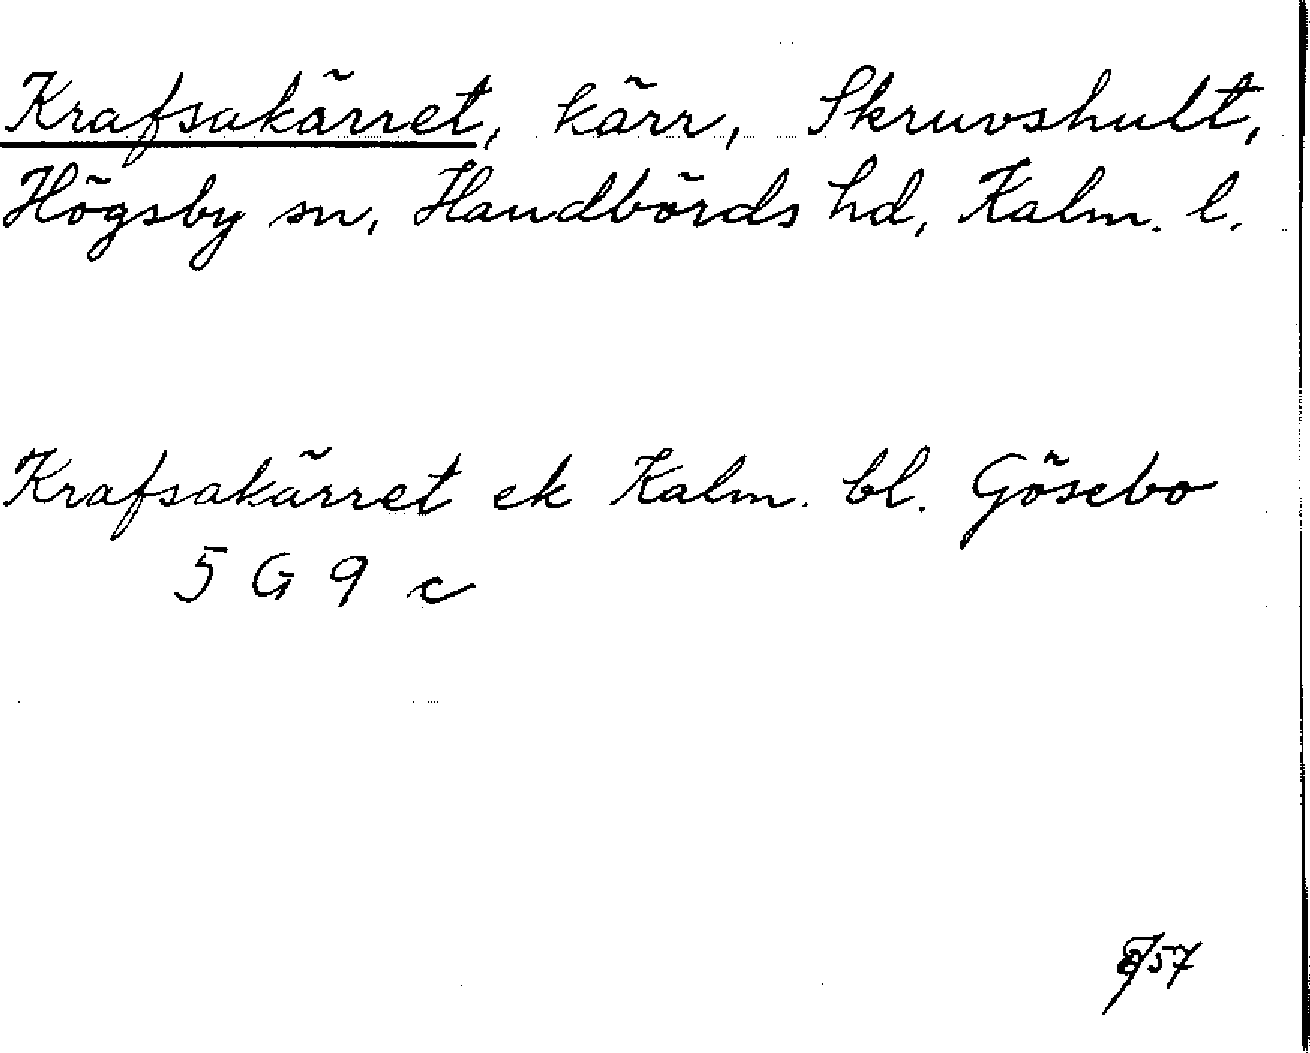 Krafsakärret, kärr, Skruvshult,
Högsby sn, Handbörds hd, Kalm. l.
Krafsakärret ek Kalm. bl. Gösebo
5 G 9 c
57